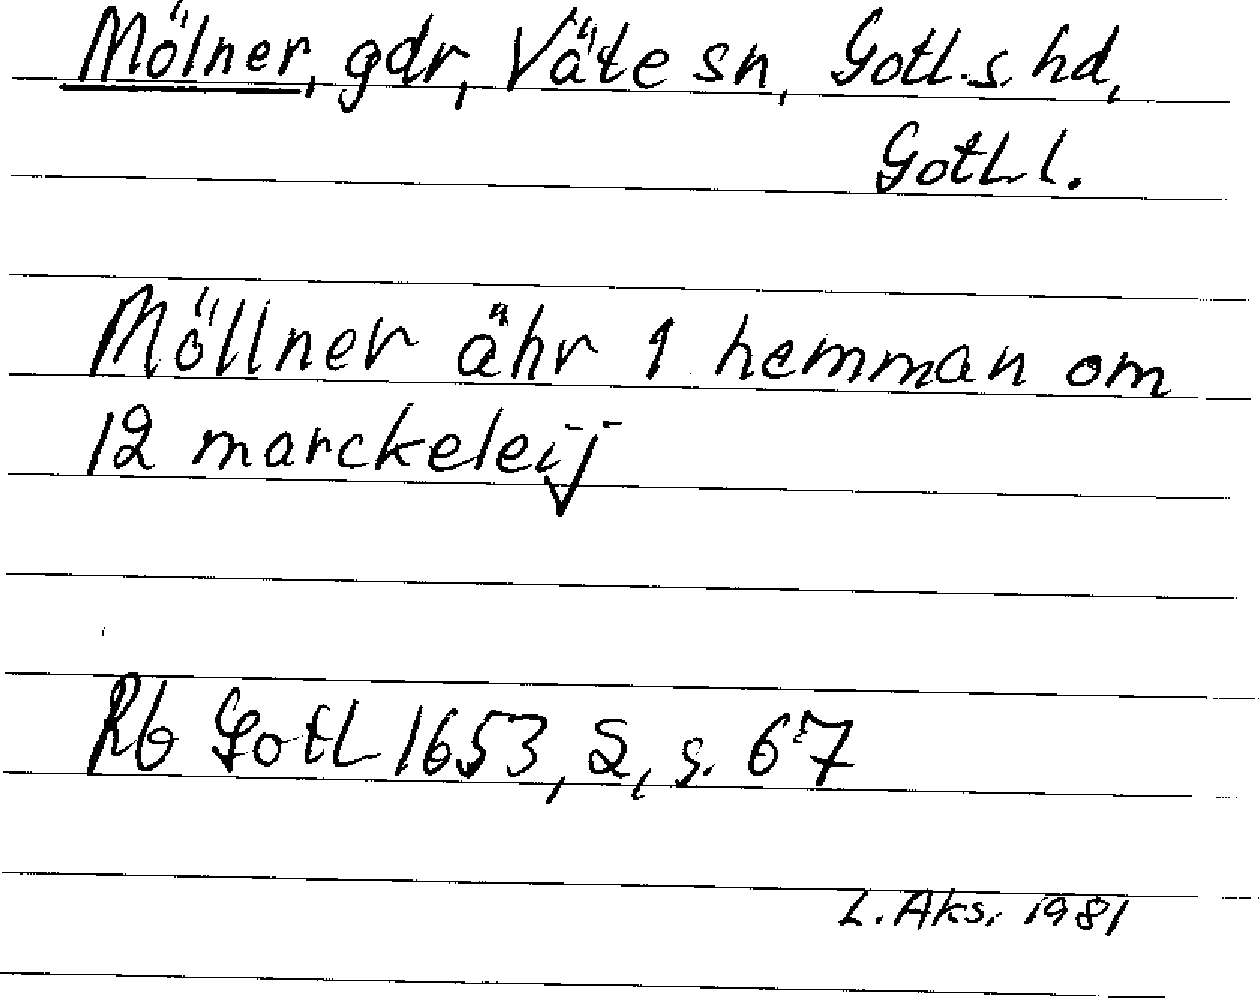 Mölner, gdr, Väte sn, Gotl. s. hd,
Gotl. l.
Möllner ähr 1 hemman om
12 marckeleij
Rb Gotl 1653, 2, s. 67
L. Aks. 1981